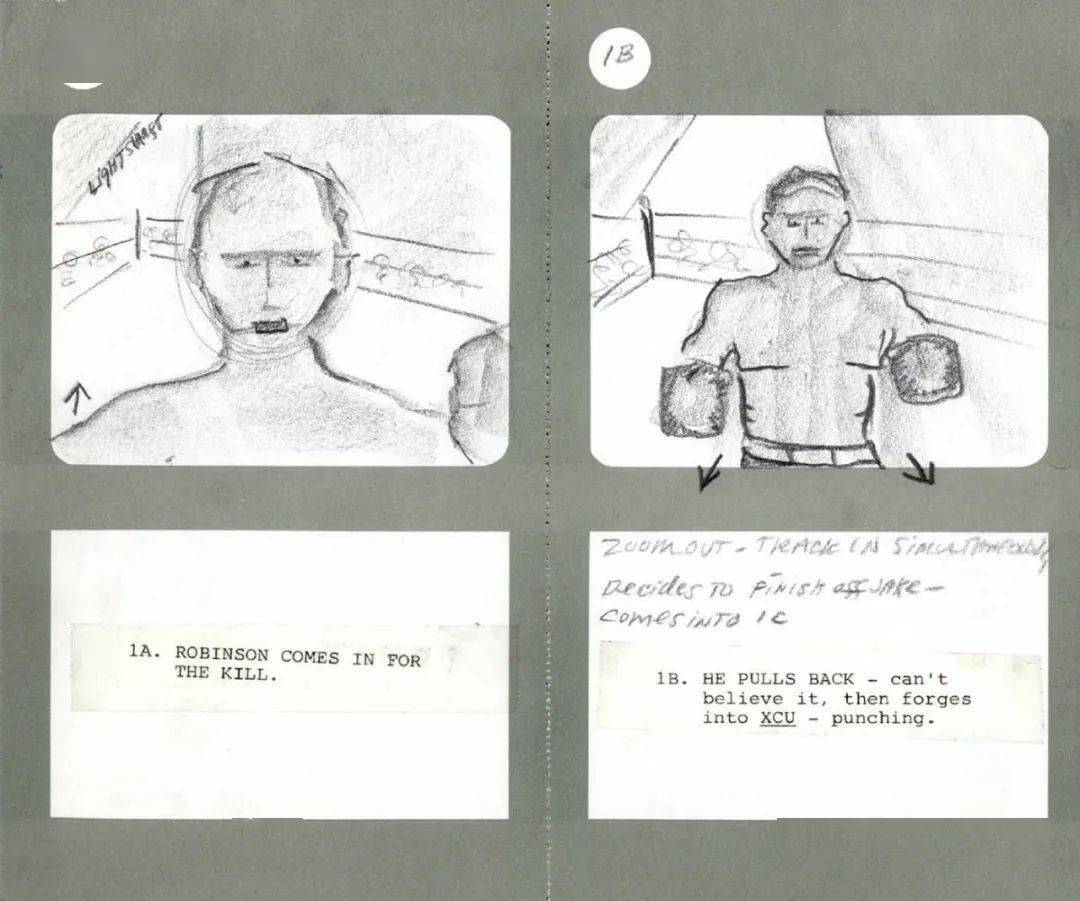 1B
LIGHTS
1A. ROBINSON COMES IN FOR
THE KILL.
ZOOM OUT - TRACK IN SIMULTANEOUSLY
Decides TO FINISH off JAKE -
comes INTO 1C
1B. HE PULLS BACK - can't
believe it, then forges
into XCU - punching.